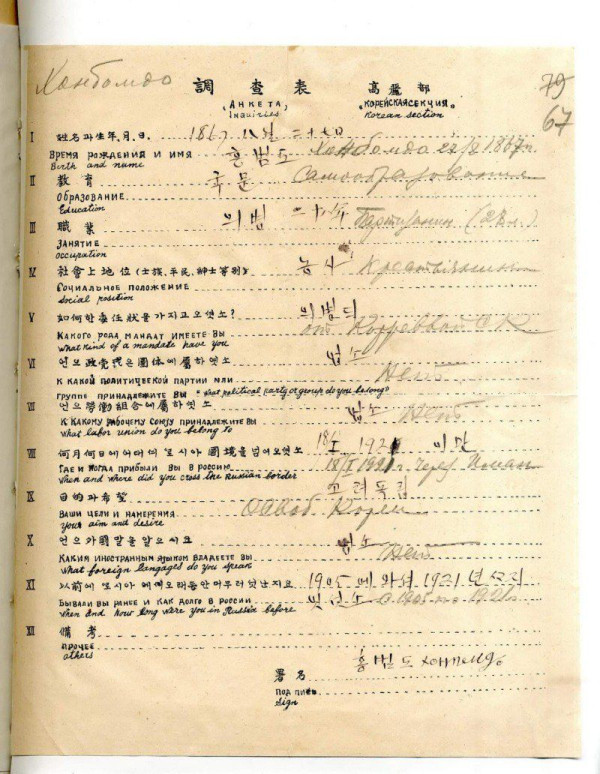 Ханбомдо
調查表 高麗部
79
(АНКЕТА) "КОРЕЙСКАЯ СЕКЦИЯ"
Inquiries Korean section
67
I 姓名과生年.月.日.
ВРЕМЯ РОЖДЕНИЯ И ИМЯ 홍범도 Ханбомдо
Birth and name
II 敎育 국문 Самообразование
ОБРАЗОВАНИЕ
Education
III 職業 의병 Партизан
ЗАНЯТИЕ
occupation
IV 社會上地位(士族,平民,紳士等別) 농사
СОЦИАЛЬНОЕ ПОЛОЖЕНИЕ
social position
V 如何한委任狀을가지고오엿소?
КАКОГО РОДА МАНДАТ ИМЕЕТЕ ВЫ от
what kind of a mandate have you
VI 언으政党또은團体에屬하엿소 업소
К КАКОЙ ПОЛИТИЧЕСКОЙ ПАРТИИ ИЛИ Нет
ГРУППЕ ПРИНАДЛЕЖИТЕ ВЫ "what political party or group do you belong"
VII 언으勞働組合에屬하엿소 업소 Нет
К КАКОМУ РАБОЧЕМУ СОЮЗУ ПРИНАДЛЕЖИТЕ ВЫ
what labor union do you belong to
VIII 이만
ГДЕ И КОГДА ПРИБЫЛИ ВЫ В РОССИЮ через Иман
when and where did you cross the Russian border
IX 目的과希望 고려독립
ВАШИ ЦЕЛИ И НАМЕРЕНИЯ Освоб Кореи
your aim and desire
X 언으外國말을알으시요 업소
КАКИМ ИНОСТРАННЫМ ЯЗЫКОМ ВЛАДЕЕТЕ ВЫ Нет
what foreign langages do you speak
XI 1905 에와셔 1921 년
БЫВАЛИ ВЫ РАНЕЕ И КАК ДОЛГО В РОССИИ с 1905 по 1921
when and how long ware you in Russia before
XII 備考
ПРОЧЕЕ
others
홍범도
署名
ПОДПИСЬ
Sign